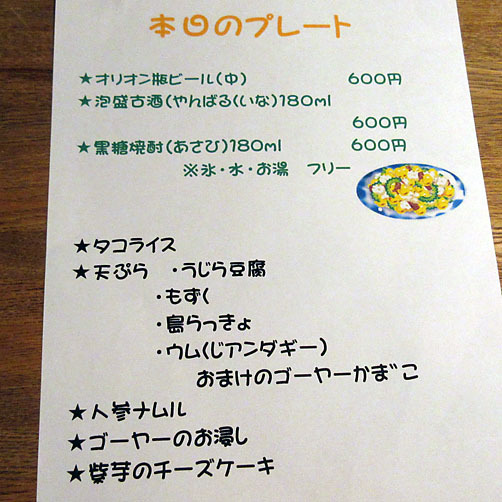 本日のプレート
★オリオン瓶ビール(中) 600円
★泡盛古酒(やんばるくいな)180ml
600円
★黒糖焼酎(あさひ)180ml 600円
※氷・水・お湯 フリー
★タコライス
★天ぷら ・うじら豆腐
・もずく
・島らっきょ
・ウム(じアンダギー)
おまけのゴーヤーかまぼこ
★人参ナムル
★ゴーヤーのお浸し
★紫芋のチーズケーキ